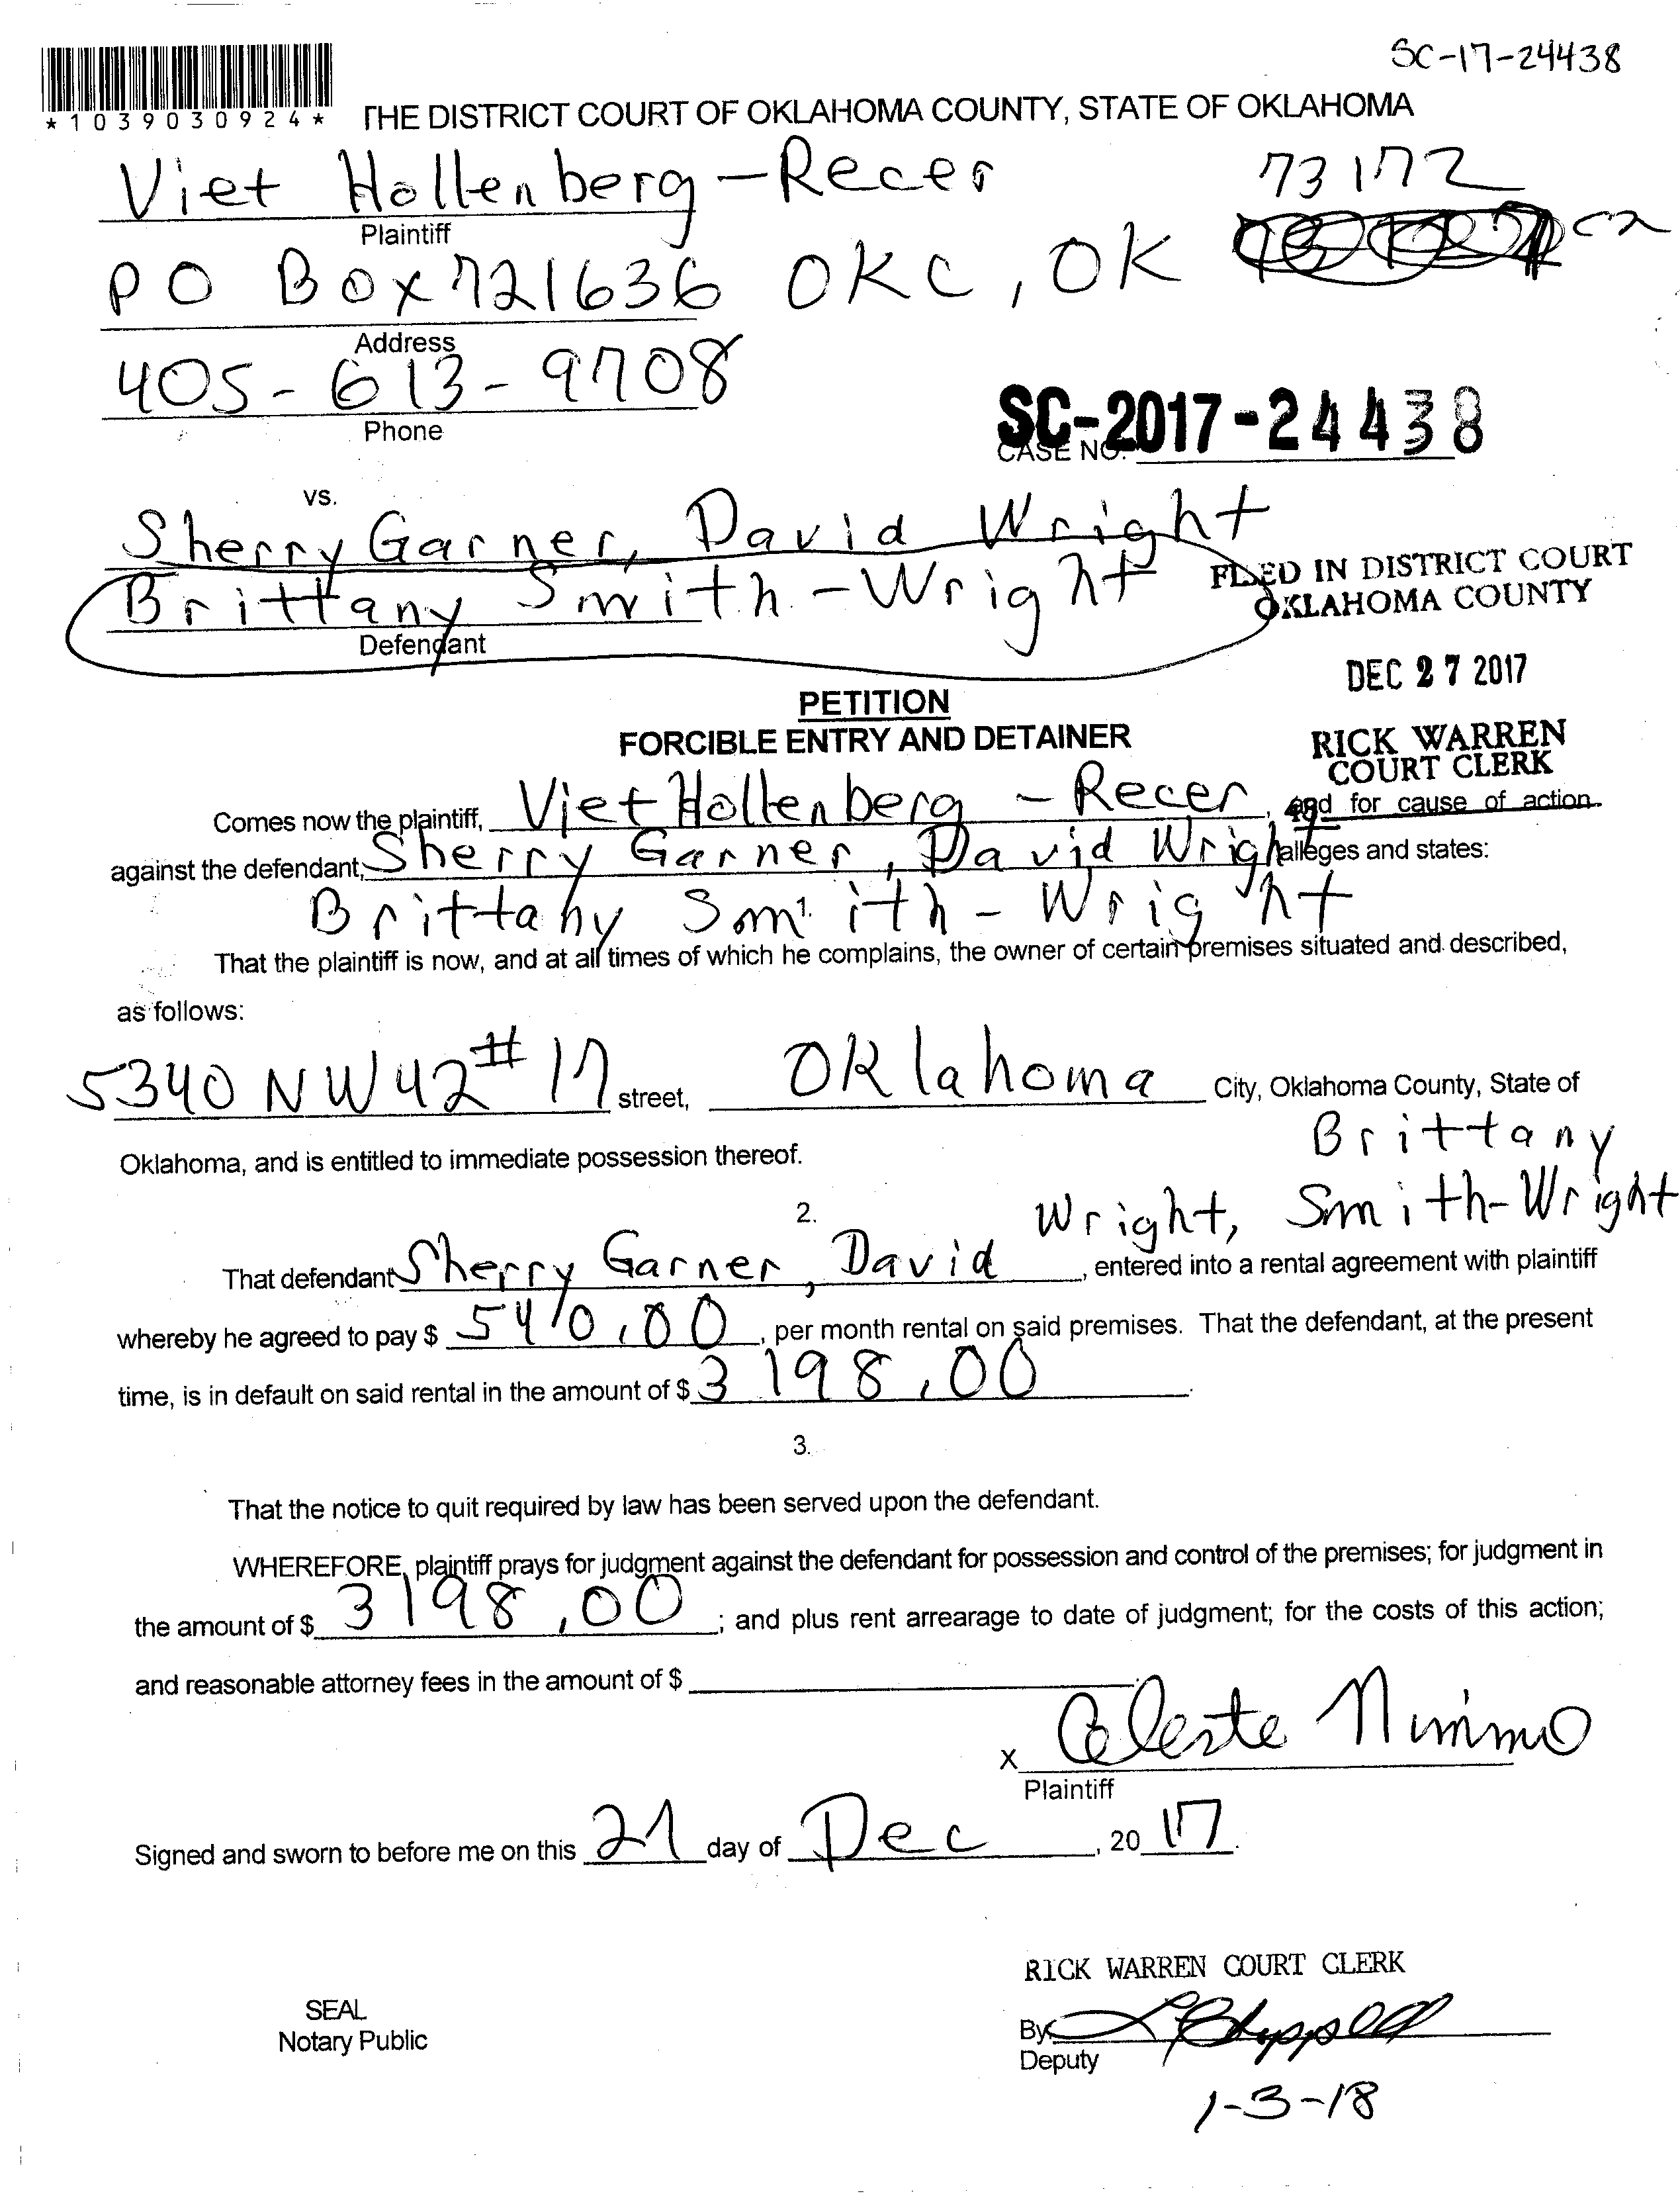 SC-17-24438
*1039030924*
THE DISTRICT COURT OF OKLAHOMA COUNTY, STATE OF OKLAHOMA
Viet Hollenberg-Recer 73172
Plaintiff
PO Box 721636 OKC, OK
Address
405-613-9708
Phone
SC-2017-24438
CASE NO.
vs.
Sherry Garner, David Wright
Brittany Smith-Wright
Defendant
FILED IN DISTRICT COURT
OKLAHOMA COUNTY
DEC 27 2017
RICK WARREN
COURT CLERK
PETITION
FORCIBLE ENTRY AND DETAINER
Comes now the plaintiff, Viet Hollenberg-Recer, and for cause of action
against the defendant, Sherry Garner, David Wright alleges and states:
Brittany Smith-Wright
That the plaintiff is now, and at all times of which he complains, the owner of certain premises situated and described,
as follows:
5340 NW 42 #17 street, Oklahoma City, Oklahoma County, State of
Oklahoma, and is entitled to immediate possession thereof.
2.
Brittany
Wright, Smith-Wright
That defendant Sherry Garner, David, entered into a rental agreement with plaintiff
whereby he agreed to pay $ 540.00, per month rental on said premises. That the defendant, at the present
time, is in default on said rental in the amount of $ 3198.00.
3.
That the notice to quit required by law has been served upon the defendant.
WHEREFORE, plaintiff prays for judgment against the defendant for possession and control of the premises; for judgment in
the amount of $ 3198.00; and plus rent arrearage to date of judgment; for the costs of this action;
and reasonable attorney fees in the amount of $
x Celeste Nimmo
Plaintiff
Signed and sworn to before me on this 21 day of Dec, 2017.
RICK WARREN COURT CLERK
SEAL
Notary Public
By
Deputy
1-3-18